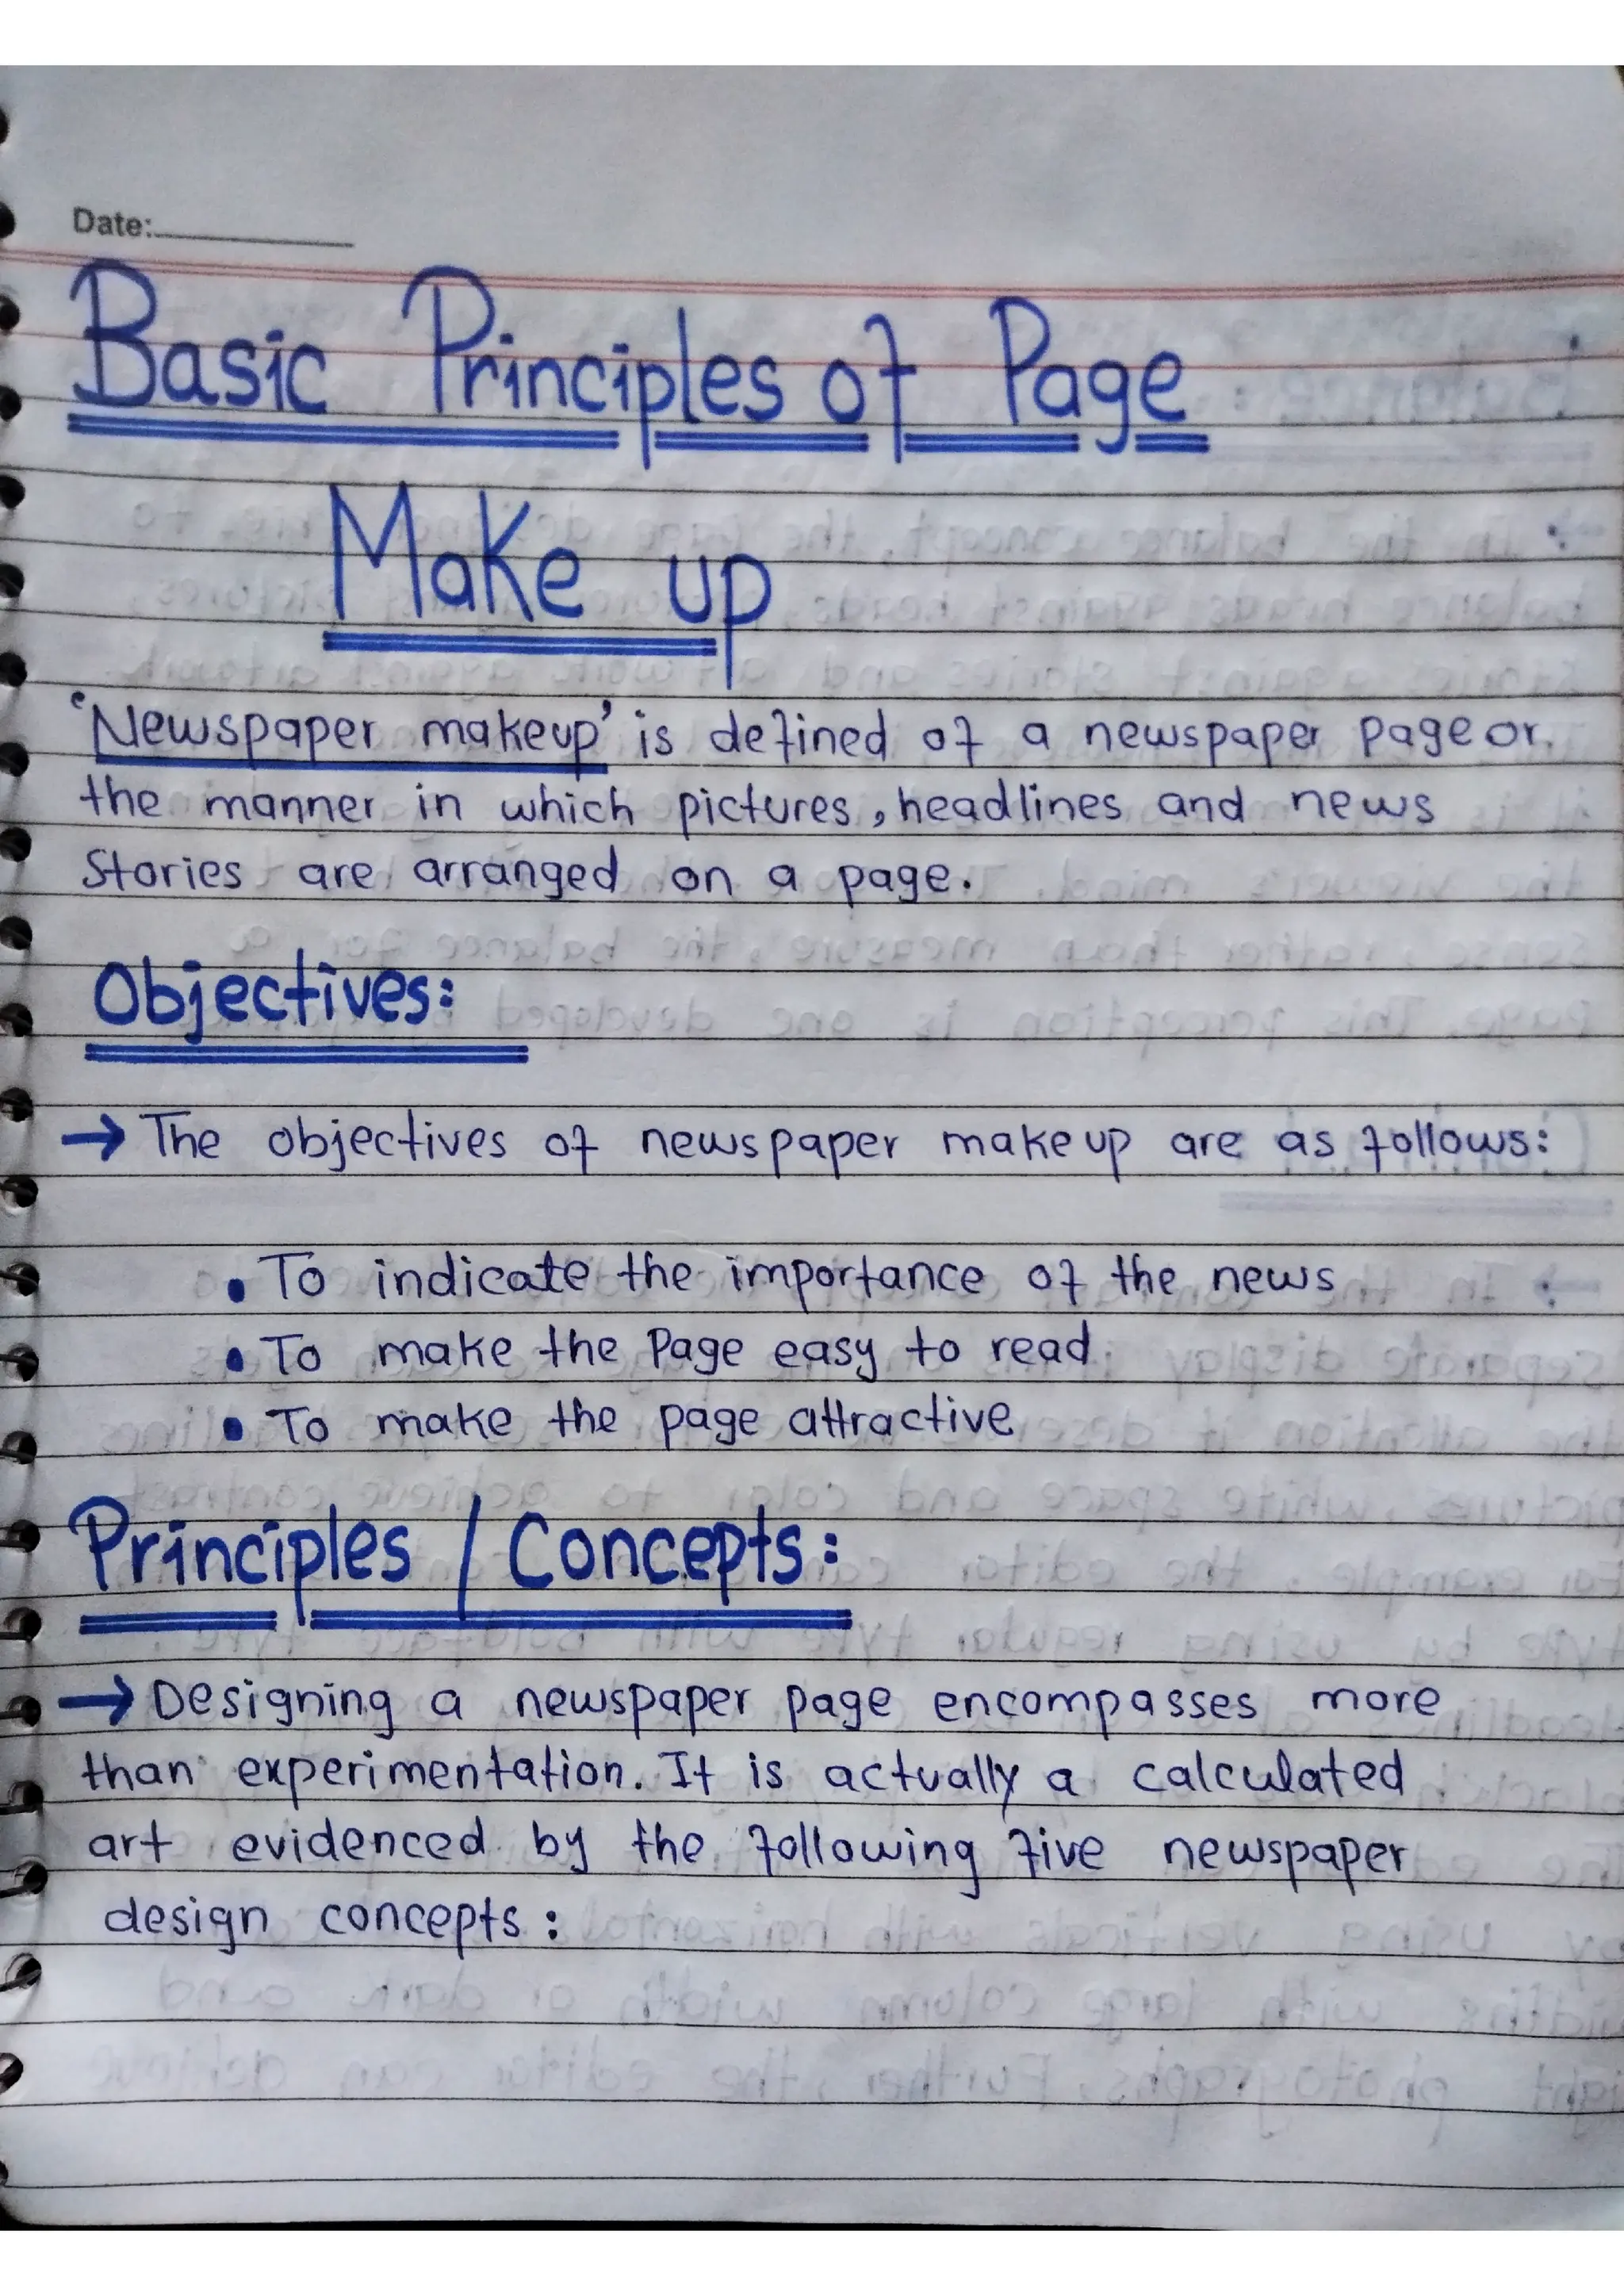 Date:
Basic Principles of Page
Make up
'Newspaper makeup' is defined of a newspaper page or
the manner in which pictures, headlines and news
Stories are arranged on a page.
Objectives:
→ The objectives of newspaper makeup are as follows:
• To indicate the importance of the news
• To make the Page easy to read
• To make the page attractive
Principles / Concepts:
→ Designing a newspaper page encompasses more
than experimentation. It is actually a calculated
art evidenced by the following five newspaper
design concepts: